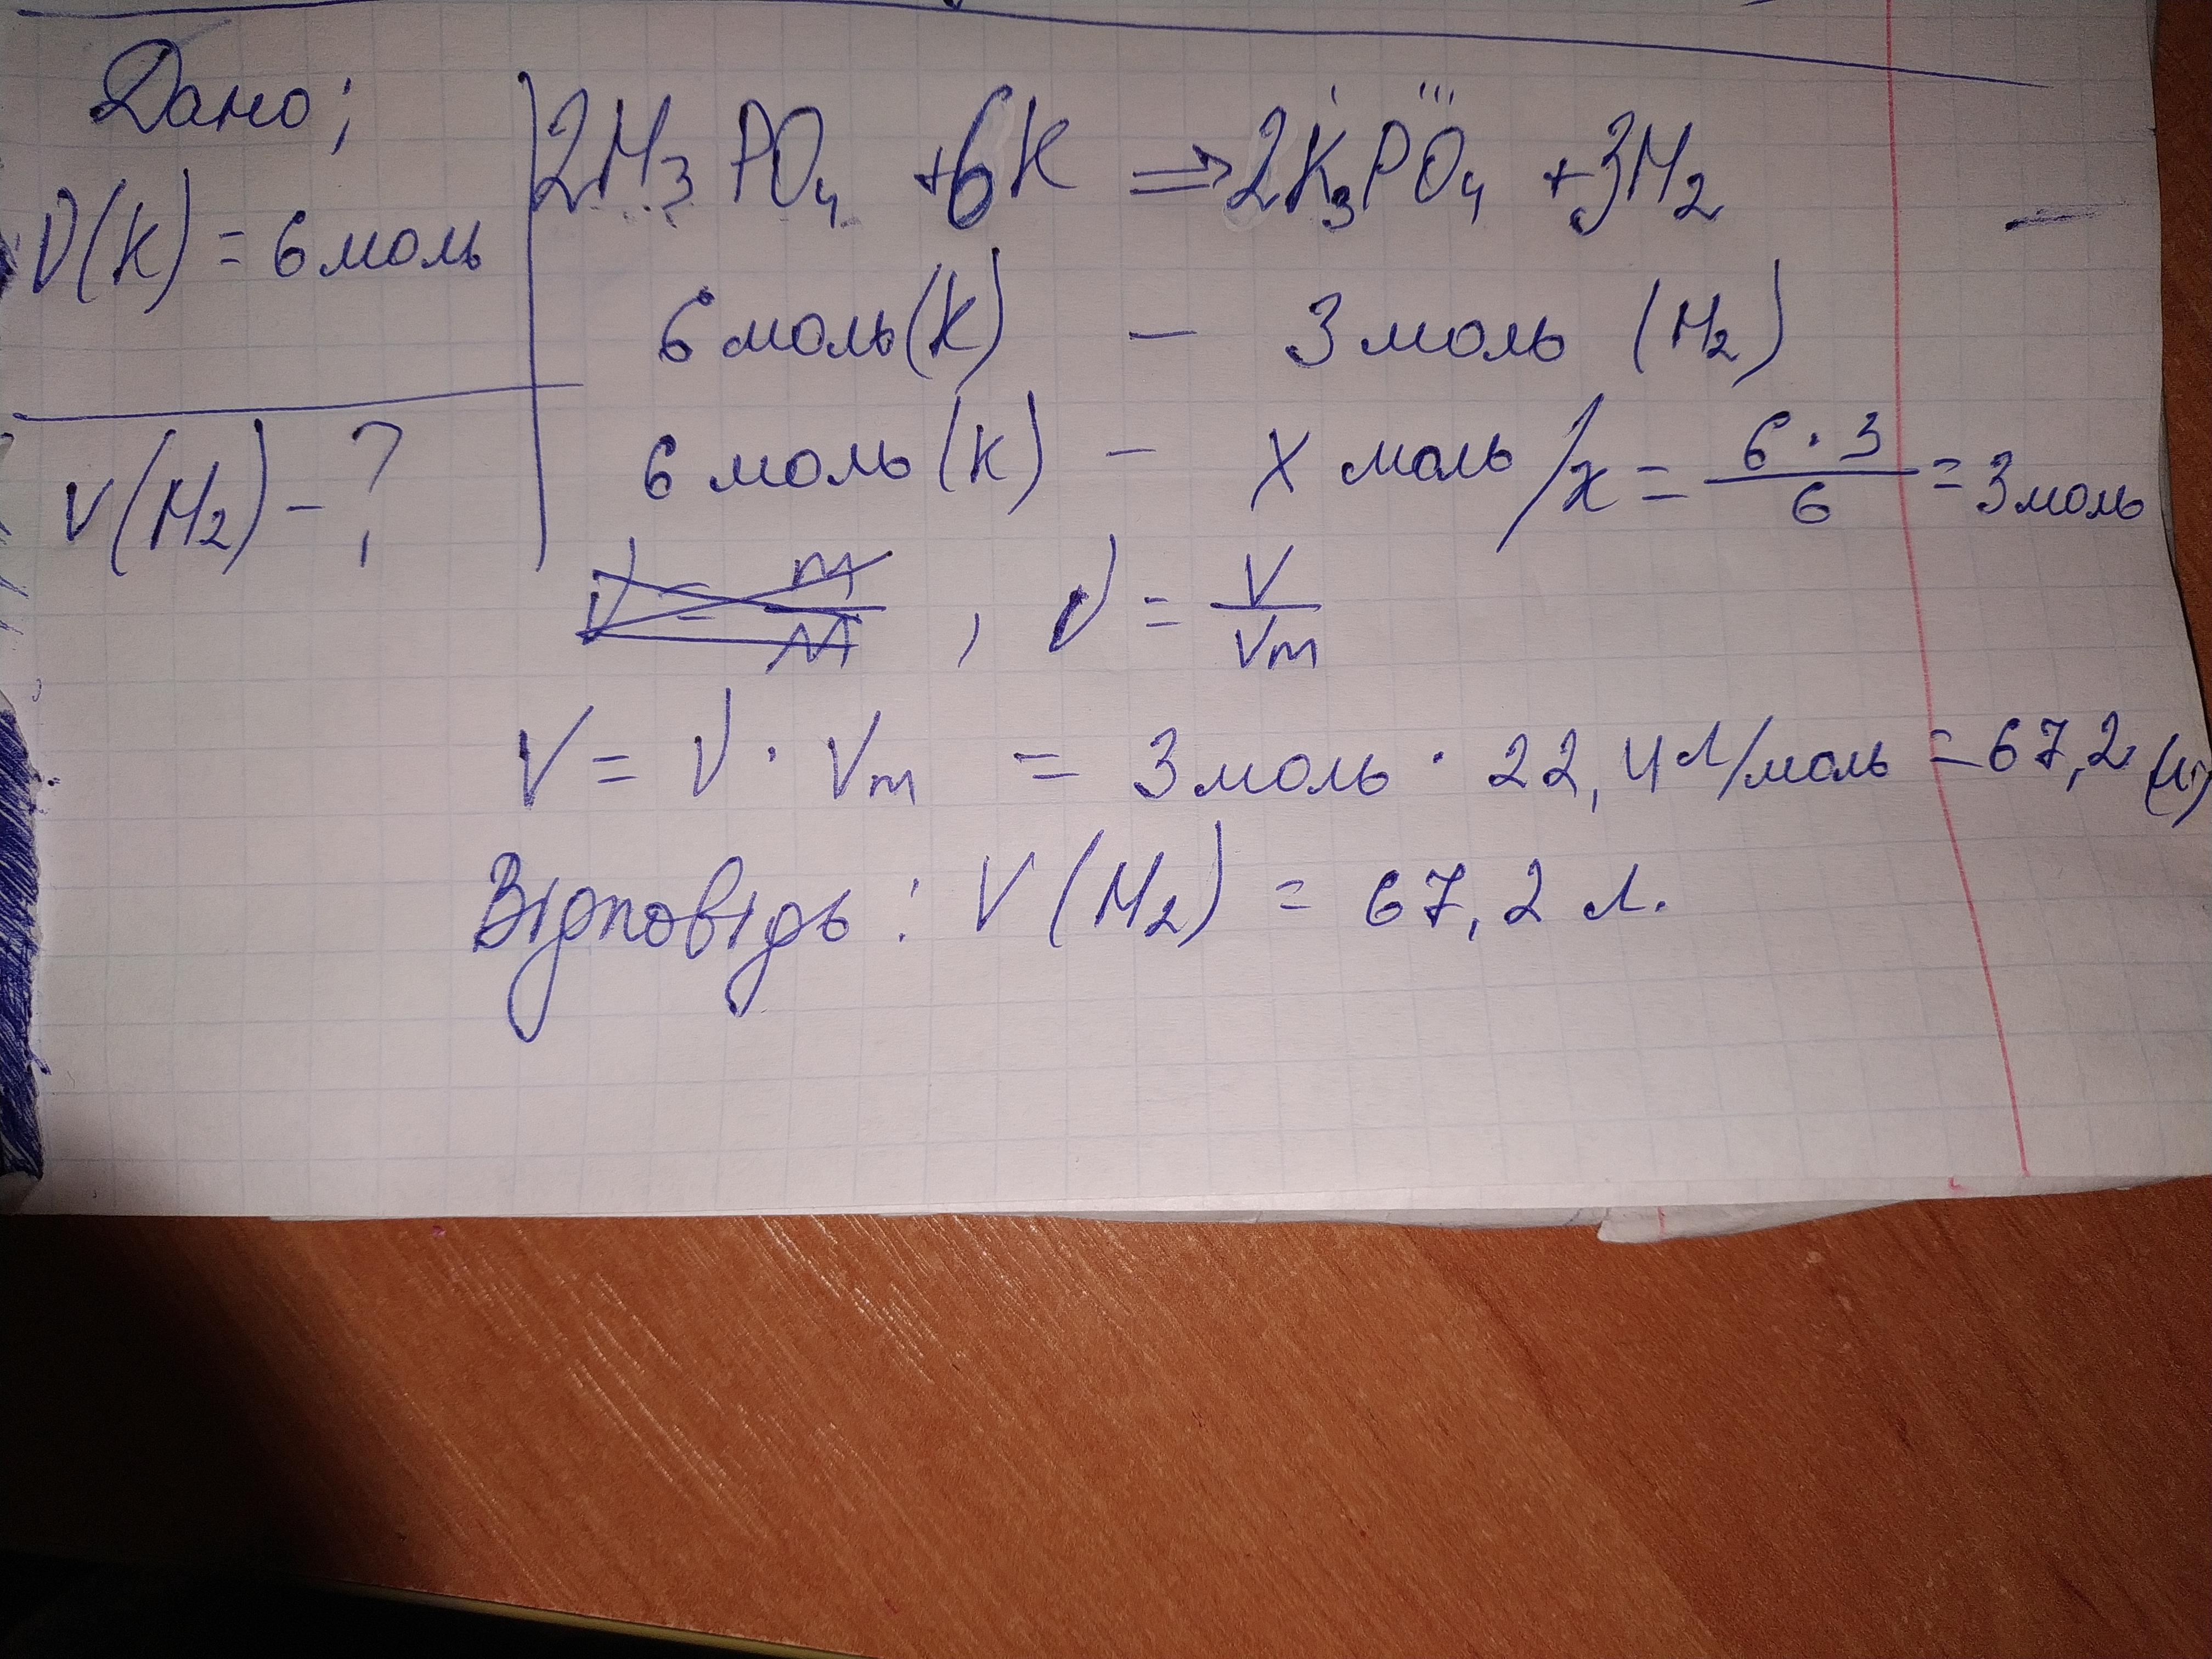 Дано;
ν(K) = 6 моль
V(H₂) - ?
2H₃PO₄ + 6K ⇒ 2K₃PO₄ + 3H₂
I III
6 моль(K) - 3 моль (H₂)
6 моль (K) - x моль / x = 6 · 3 / 6 = 3 моль
ν = m / M , ν = V / Vm
V = ν · Vm = 3 моль · 22,4 л/моль = 67,2 (л)
Відповідь : V (H₂) = 67,2 л.